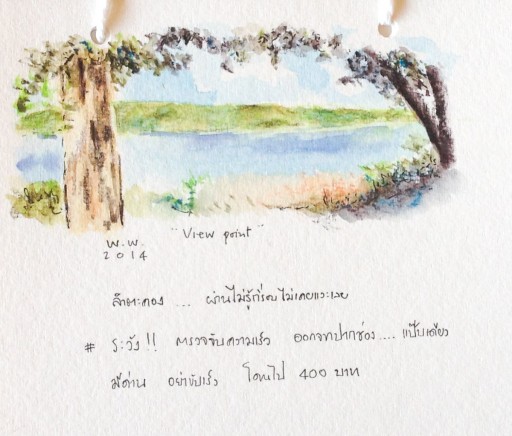 "View point"
W.W.
2014
ลำตะคอง ... ผ่านไม่รู้กี่รอบ ไม่เคยแวะเลย
# ระวัง !! ตรวจจับความเร็ว ออกจากปากช่อง .... แป๊บเดียว
มีด่าน อย่าขับเร็ว โดนไป 400 บาท